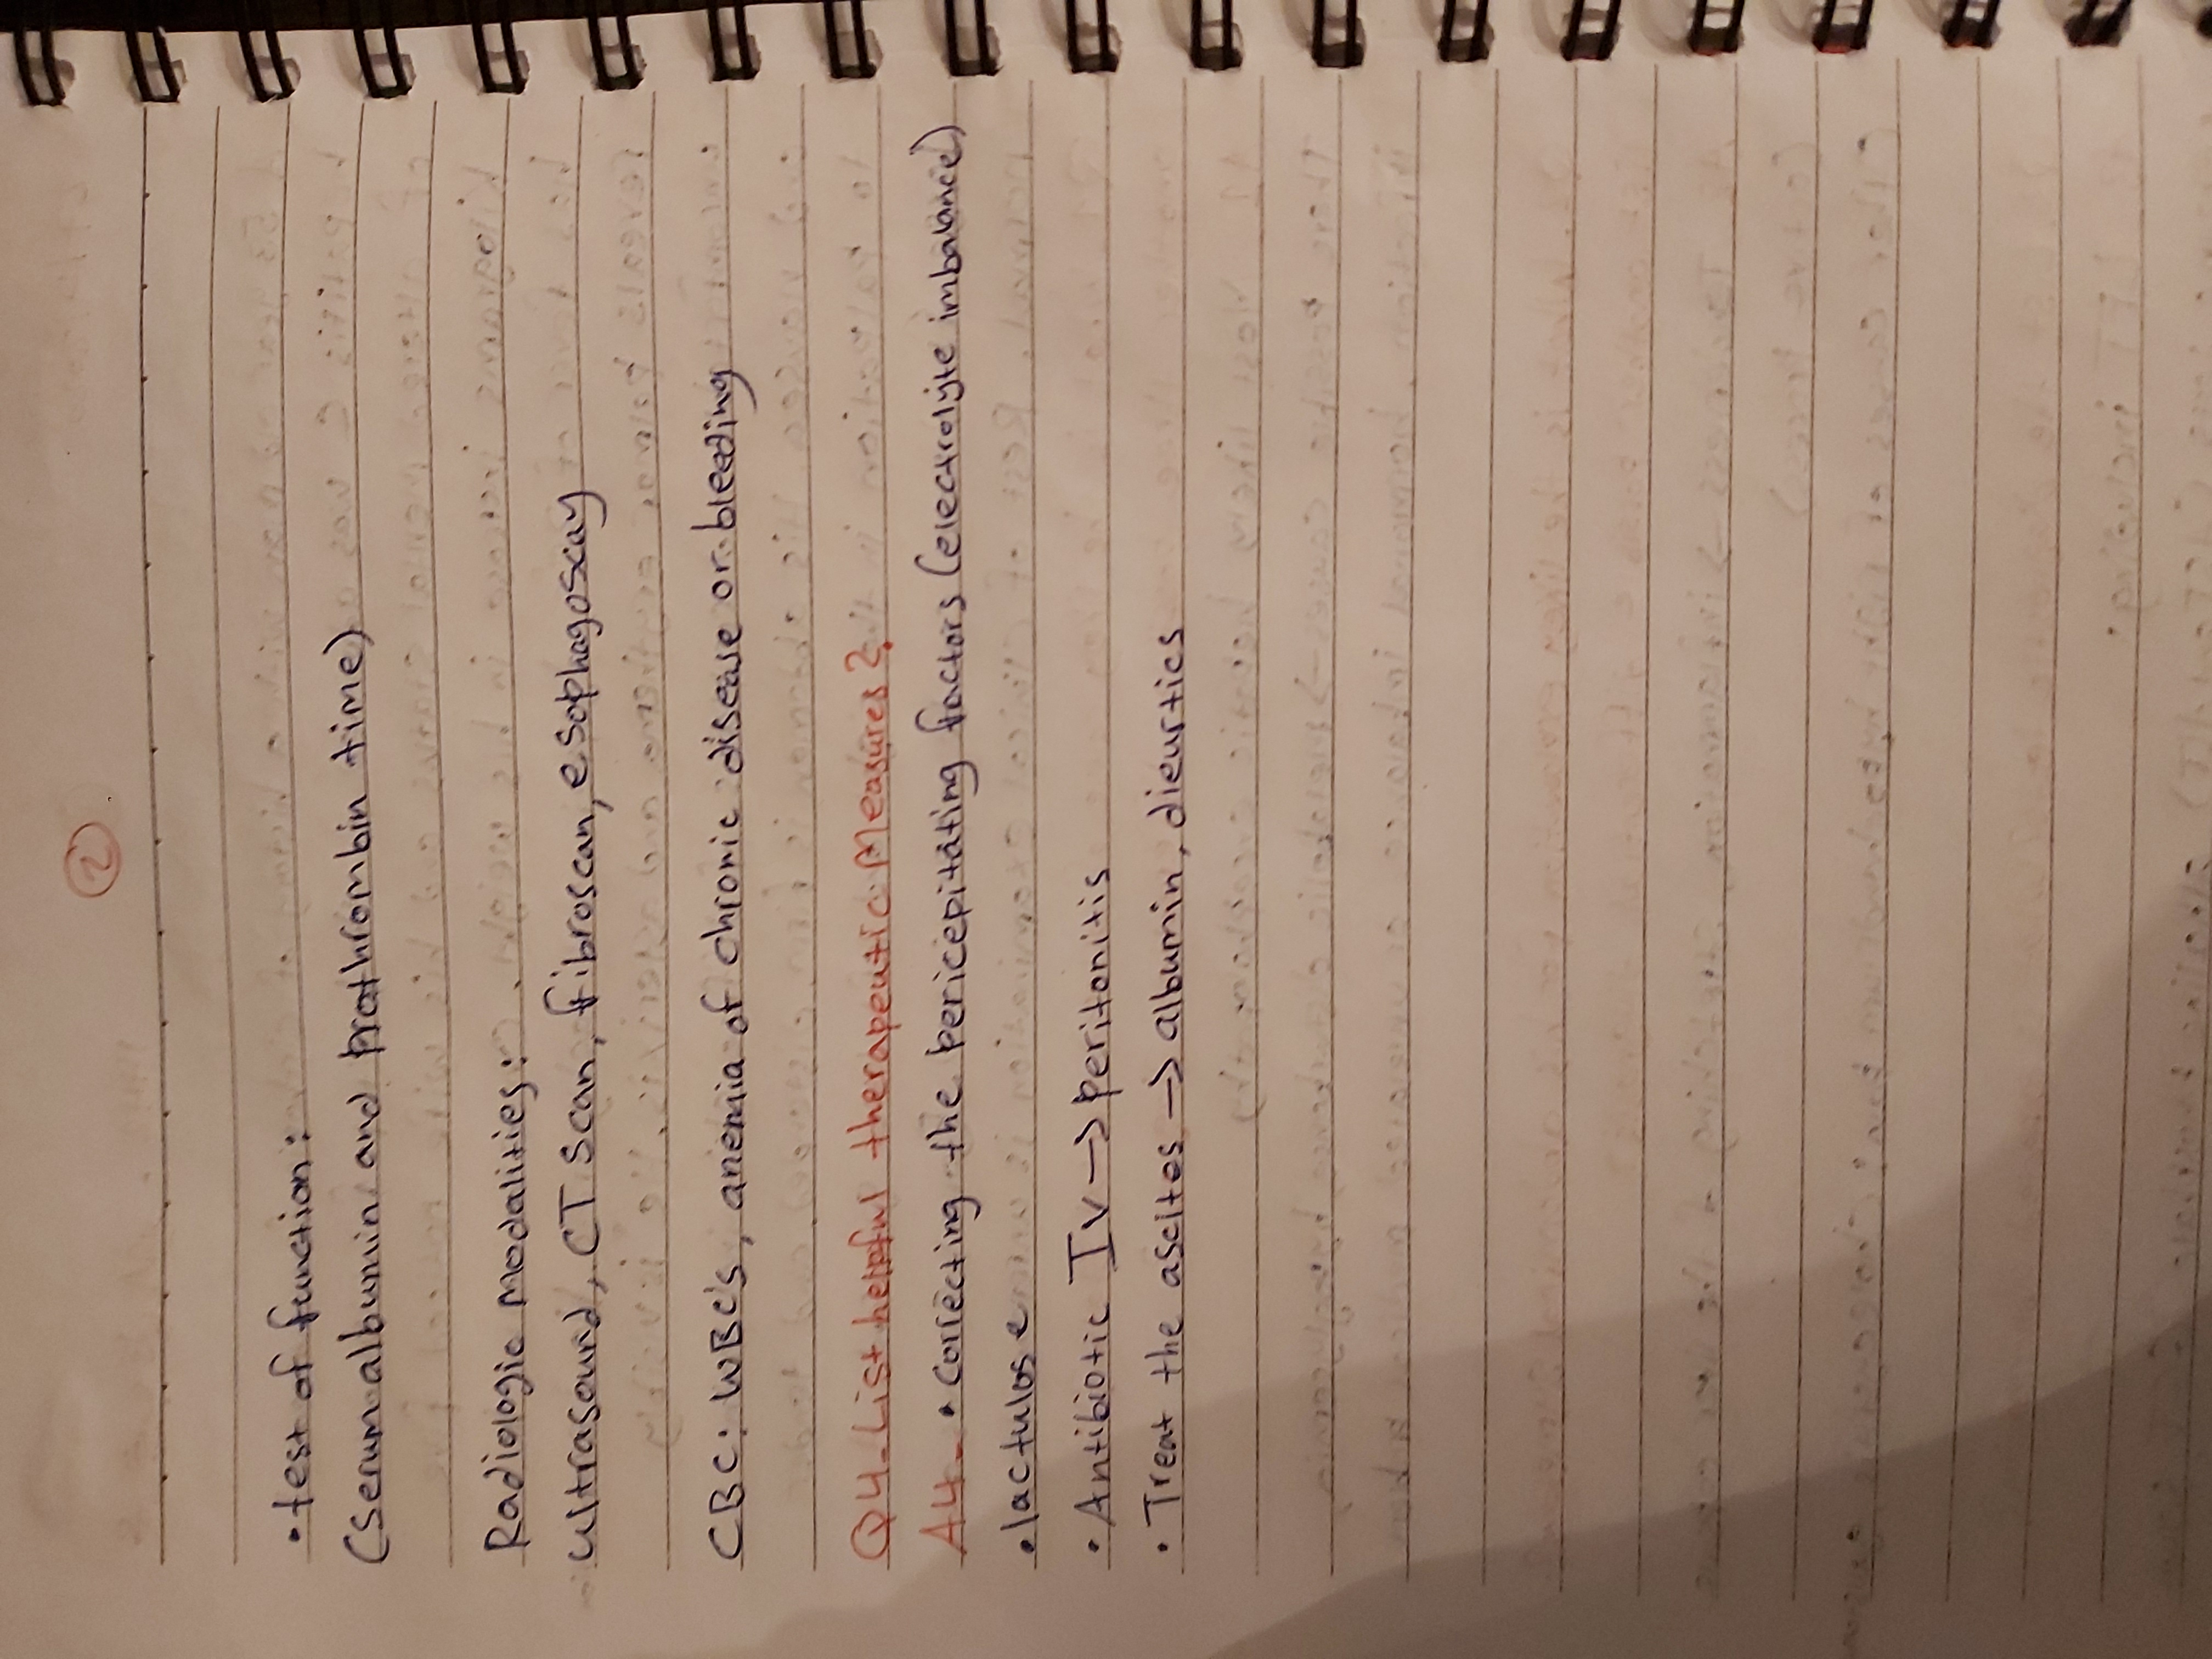 2
• test of function:
(serum albumin and prothrombin time)
Radiologic modalities:
ultrasound, CT scan, fibroscan, esophagoscay
CBC: WBC's, anemia of chronic disease or bleeding
Q4- List helpful therapeutic Measures?
A4- • correcting the pericepitating factors (electrolyte imbalance)
• lactulose
• Antibiotic IV → peritonitis
• Treat the ascites → albumin, dieurtics